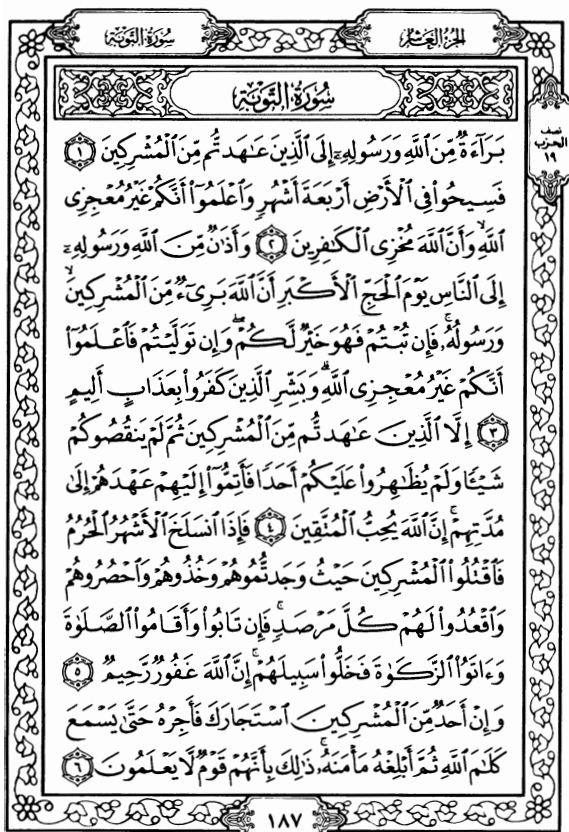 الجزء العاشر
سورة التوبة
نصف
الحزب
١٩
سورة التوبة
بَرَآءَةٌ مِّنَ ٱللَّهِ وَرَسُولِهِۦٓ إِلَى ٱلَّذِينَ عَٰهَدتُّم مِّنَ ٱلْمُشْرِكِينَ ١
فَسِيحُوا۟ فِى ٱلْأَرْضِ أَرْبَعَةَ أَشْهُرٍ وَٱعْلَمُوٓا۟ أَنَّكُمْ غَيْرُ مُعْجِزِى
ٱللَّهِ ۙ وَأَنَّ ٱللَّهَ مُخْزِى ٱلْكَٰفِرِينَ ٢ وَأَذَٰنٌ مِّنَ ٱللَّهِ وَرَسُولِهِۦٓ
إِلَى ٱلنَّاسِ يَوْمَ ٱلْحَجِّ ٱلْأَكْبَرِ أَنَّ ٱللَّهَ بَرِىٓءٌ مِّنَ ٱلْمُشْرِكِينَ ۙ
وَرَسُولُهُۥ ۚ فَإِن تُبْتُمْ فَهُوَ خَيْرٌ لَّكُمْ ۖ وَإِن تَوَلَّيْتُمْ فَٱعْلَمُوٓا۟
أَنَّكُمْ غَيْرُ مُعْجِزِى ٱللَّهِ ۗ وَبَشِّرِ ٱلَّذِينَ كَفَرُوا۟ بِعَذَابٍ أَلِيمٍ
٣ إِلَّا ٱلَّذِينَ عَٰهَدتُّم مِّنَ ٱلْمُشْرِكِينَ ثُمَّ لَمْ يَنقُصُوكُمْ
شَيْـًٔا وَلَمْ يُظَٰهِرُوا۟ عَلَيْكُمْ أَحَدًا فَأَتِمُّوٓا۟ إِلَيْهِمْ عَهْدَهُمْ إِلَىٰ
مُدَّتِهِمْ ۚ إِنَّ ٱللَّهَ يُحِبُّ ٱلْمُتَّقِينَ ٤ فَإِذَا ٱنسَلَخَ ٱلْأَشْهُرُ ٱلْحُرُمُ
فَٱقْتُلُوا۟ ٱلْمُشْرِكِينَ حَيْثُ وَجَدتُّمُوهُمْ وَخُذُوهُمْ وَٱحْصُرُوهُمْ
وَٱقْعُدُوا۟ لَهُمْ كُلَّ مَرْصَدٍ ۚ فَإِن تَابُوا۟ وَأَقَامُوا۟ ٱلصَّلَوٰةَ
وَءَاتَوُا۟ ٱلزَّكَوٰةَ فَخَلُّوا۟ سَبِيلَهُمْ ۚ إِنَّ ٱللَّهَ غَفُورٌ رَّحِيمٌ ٥
وَإِنْ أَحَدٌ مِّنَ ٱلْمُشْرِكِينَ ٱسْتَجَارَكَ فَأَجِرْهُ حَتَّىٰ يَسْمَعَ
كَلَٰمَ ٱللَّهِ ثُمَّ أَبْلِغْهُ مَأْمَنَهُۥ ۚ ذَٰلِكَ بِأَنَّهُمْ قَوْمٌ لَّا يَعْلَمُونَ ٦
١٨٧